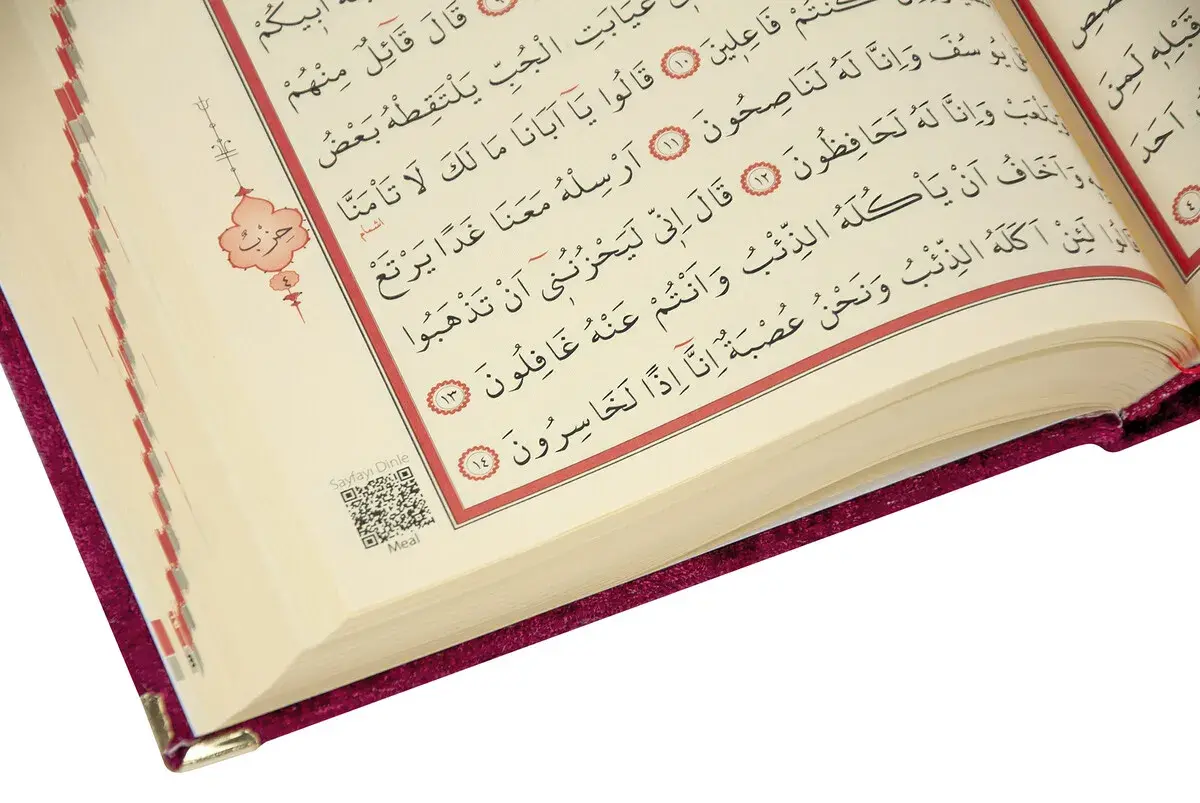 اَبٖيكُمْ
قَالَ قَٓائِلٌ مِنْهُمْ
غَيَابَتِ الْجُبِّ يَلْتَقِطْهُ بَعْضُ
كُنْتُمْ فَاعِلٖينَ ١٠ قَالُوا يَٓا اَبَانَا مَا لَكَ لَا تَأْمَنَّا
اشمام
يُوسُفَ وَاِنَّا لَهُ لَنَاصِحُونَ ١١ اَرْسِلْهُ مَعَنَا غَدًا يَرْتَعْ
وَيَلْعَبْ وَاِنَّا لَهُ لَحَافِظُونَ ١٢ قَالَ اِنّٖي لَيَحْزُنُنٖٓي اَنْ تَذْهَبُوا
وَاَخَافُ اَنْ يَأْكُلَهُ الذِّئْبُ وَاَنْتُمْ عَنْهُ غَافِلُونَ ١٣
قَالُوا لَئِنْ اَكَلَهُ الذِّئْبُ وَنَحْنُ عُصْبَةٌ اِنَّٓا اِذًا لَخَاسِرُونَ ١٤
حِزْبٌ
٤
Sayfayı Dinle
Meal
قَبْلِهٖ لَمِنَ
اَحَدَ
٤